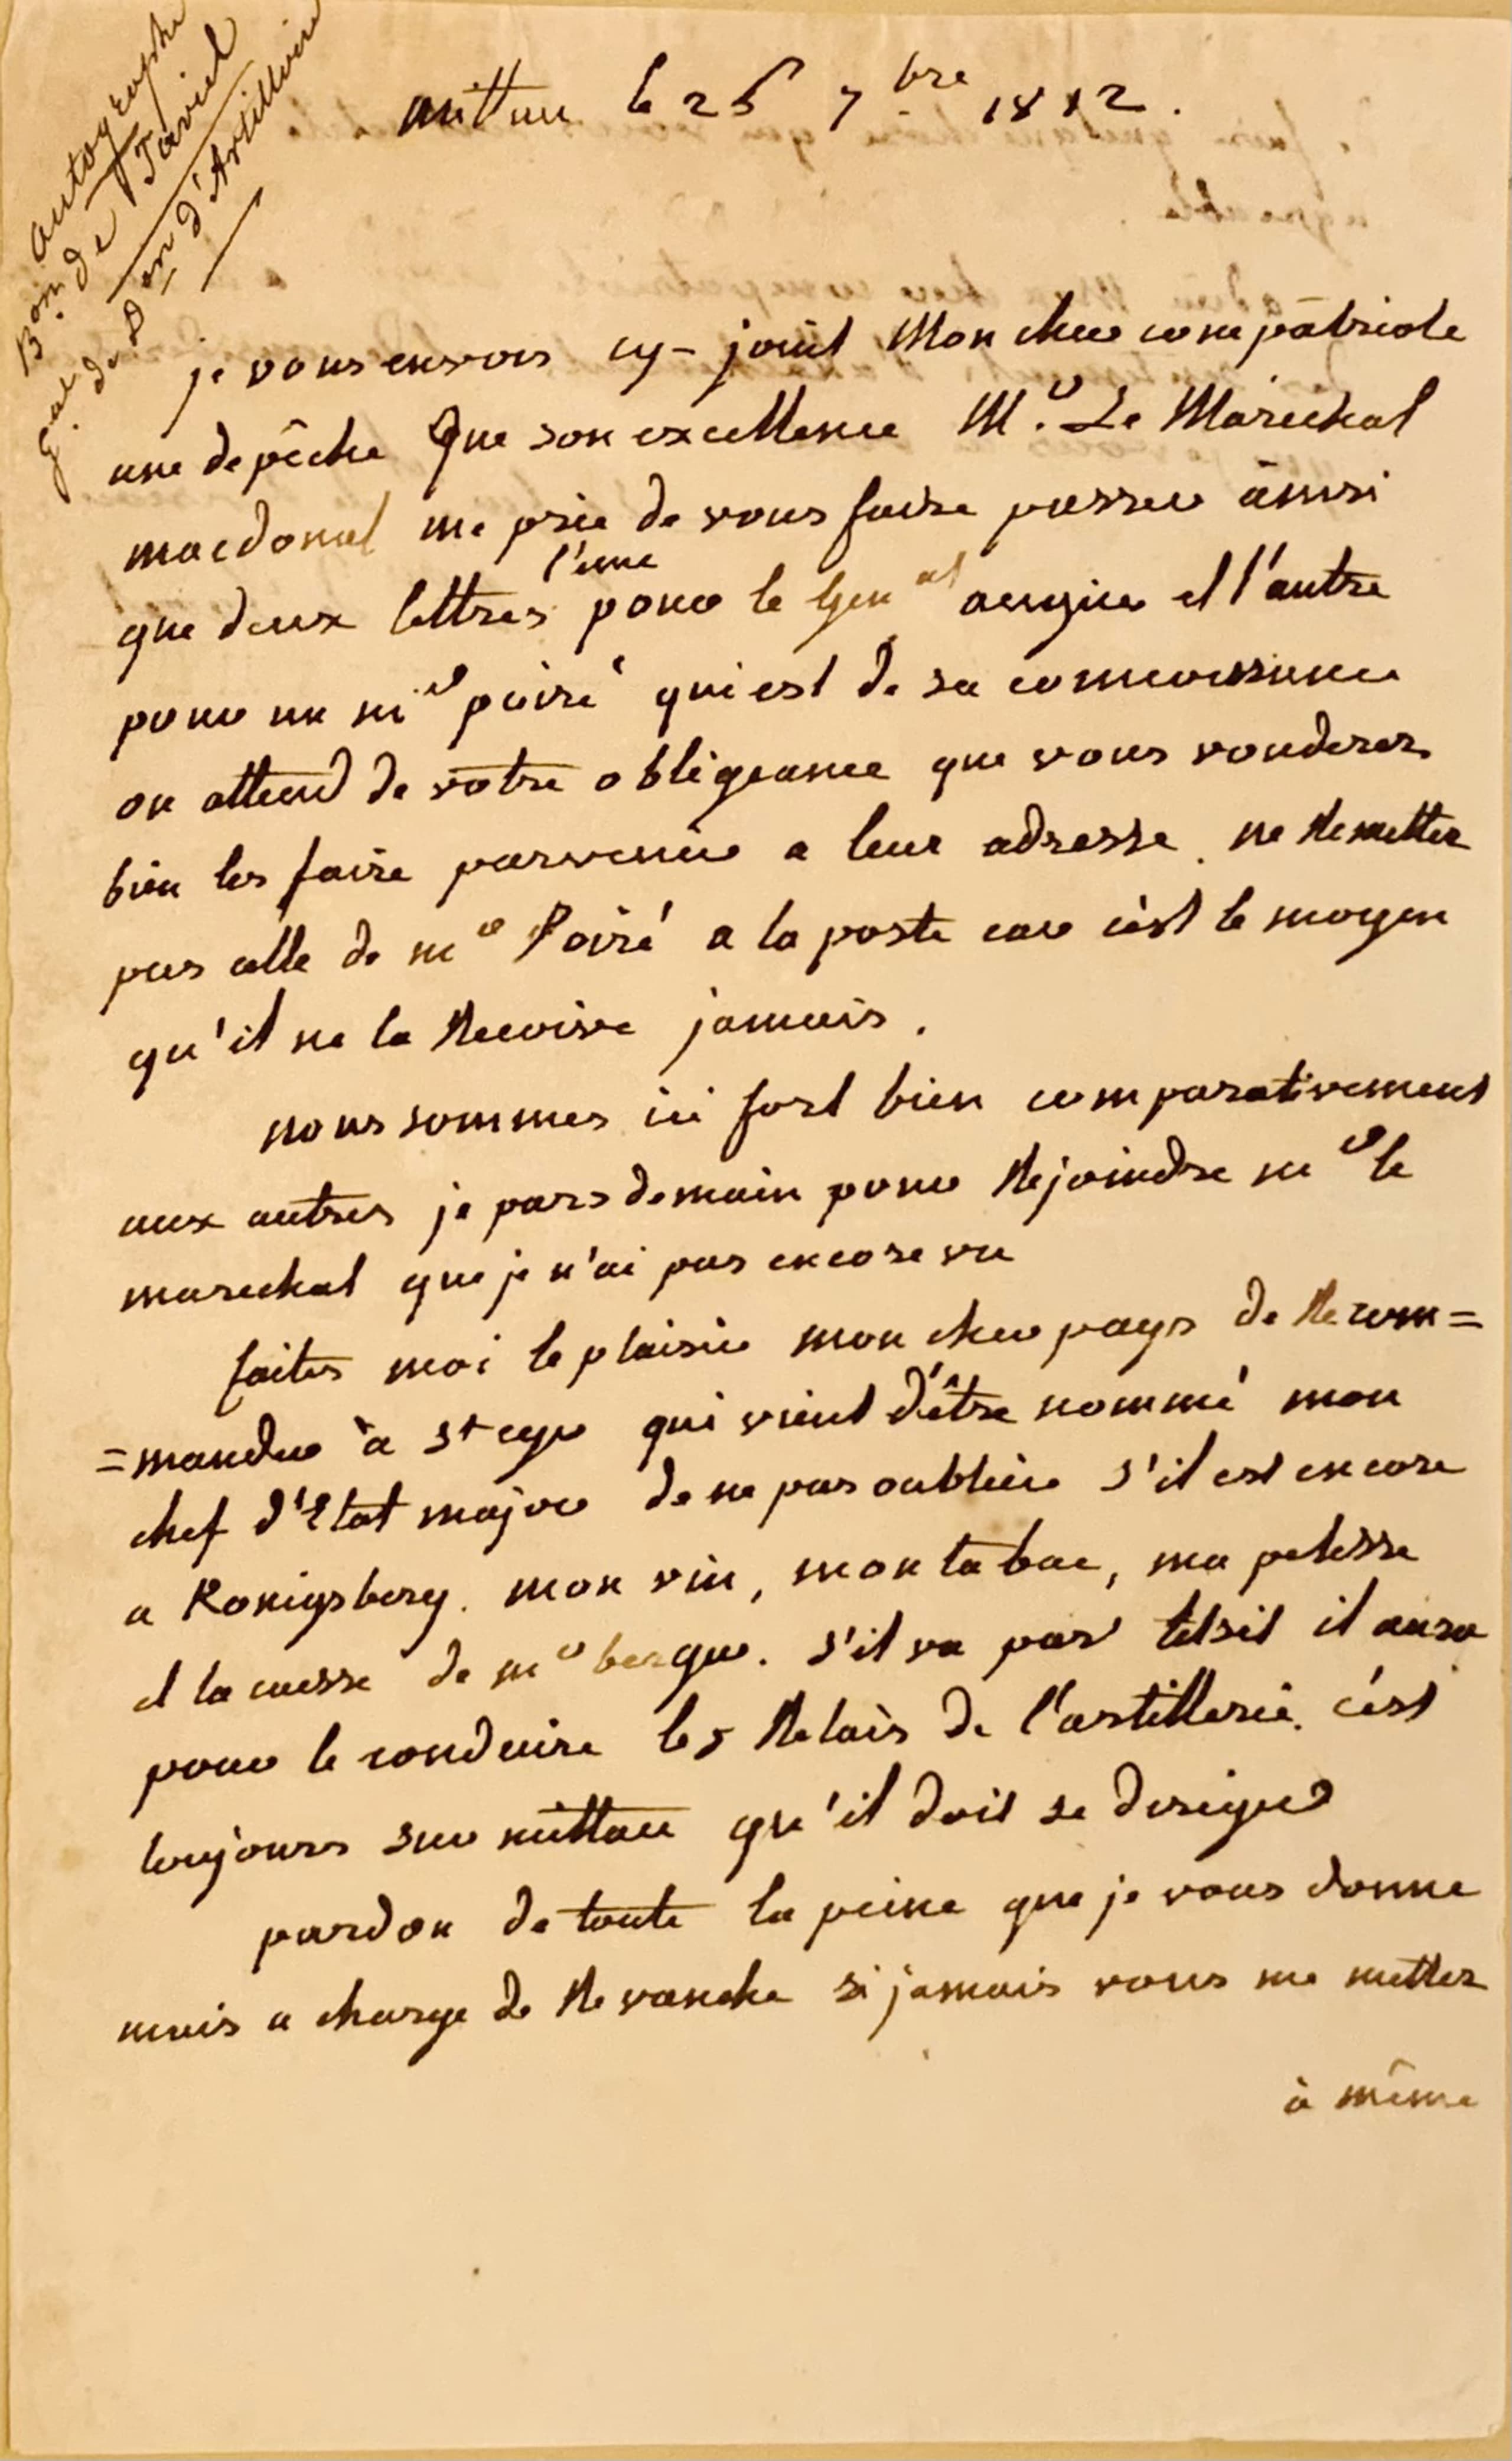 autographe
Bon de Taviel
Gal de Don d'Artillerie
mittau le 25 7bre 1812.
je vous envois cy-joint Mon cher compatriote
une depêche Que son excellence Mr. Le Marechal
macdonal me prie de vous faire passer ainsi
que deux lettres l'une pour le Genal augier et l'autre
pour un mr poiré qui est de sa connoissance
on attend de votre obligeance que vous vouderez
bien les faire parvenir a leur adresse. ne Remettez
pas celle de mr Poiré a la poste car c'est le moyen
qu'il ne la Recoive jamais.
nous sommes ici fort bien comparativement
aux autres je pars demain pour Rejoindre mr le
marechal que je n'ai pas encore vu
faites moi le plaisir mon cher pays de Recom=
=mander à st cyr qui vient d'être nommé mon
chef d'Etat major de ne pas oublier s'il est encore
a Konigsberg. mon vin, mon tabac, ma pelisse
et la caisse de mr berger. s'il va par tilsit il aura
pour le conduire les Relais de l'artillerie. c'est
toujours sur mittau qu'il doit se diriger
pardon de toute la peine que je vous donne
mais a charge de Revanche si jamais vous me mettez
à même